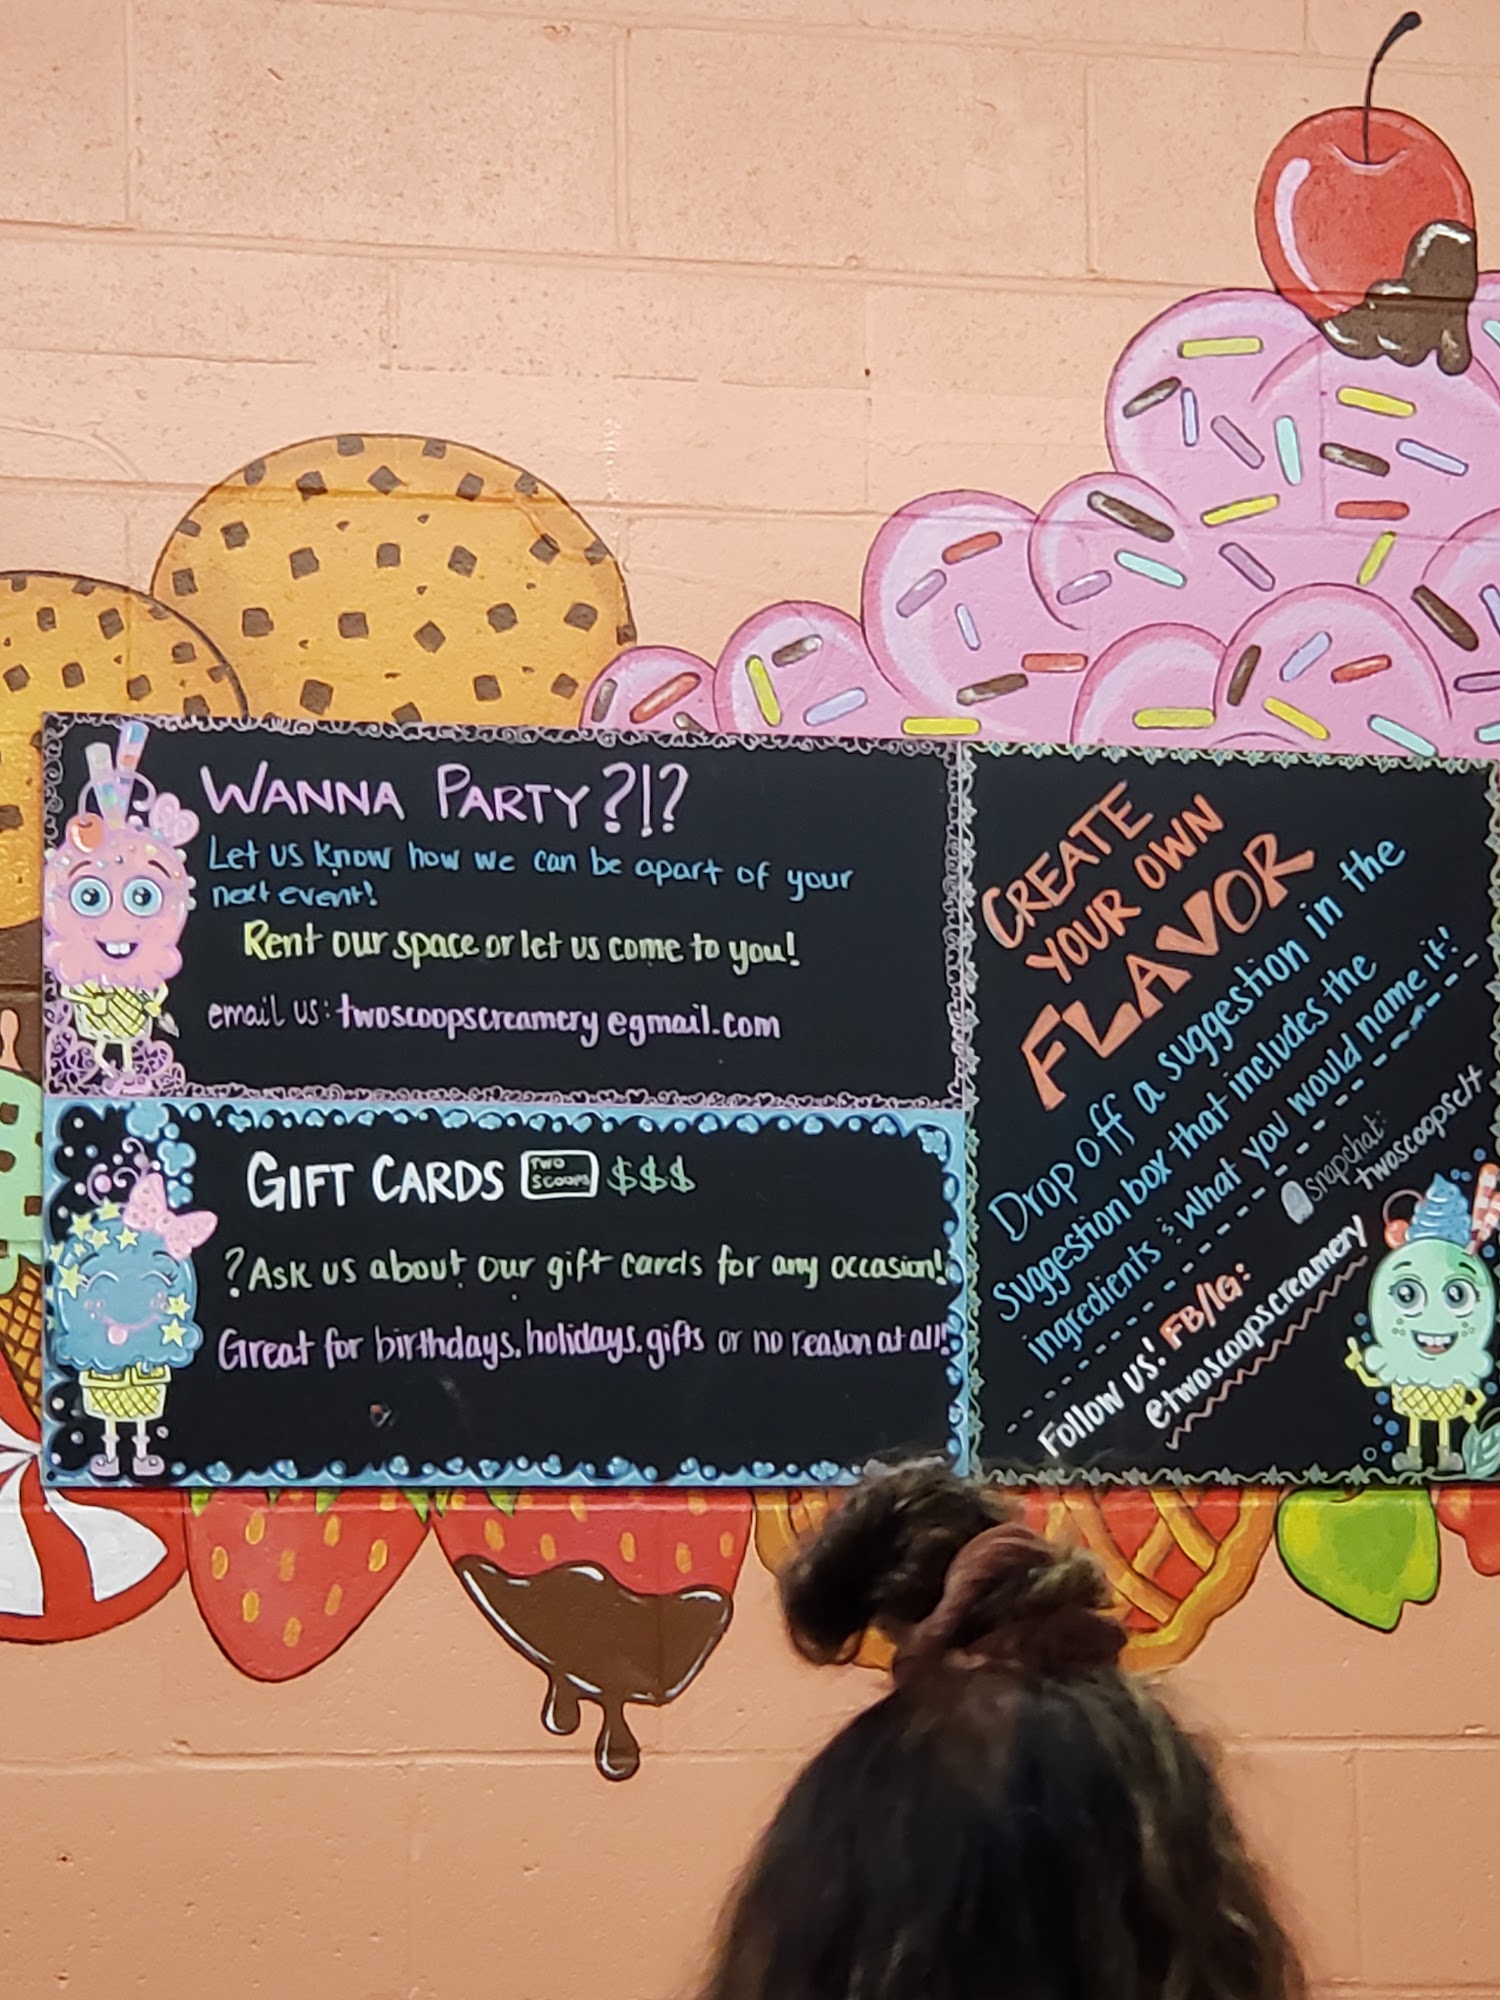 WANNA PARTY?!?
Let us know how we can be apart of your
next event!
Rent our space or let us come to you!
email us: twoscoopscreamery@gmail.com
GIFT CARDS TWO SCOOPS $$$
? Ask us about our gift cards for any occasion!
Great for birthdays, holidays, gifts or no reason at all!
CREATE
YOUR OWN
FLAVOR
Drop off a suggestion in the
suggestion box that includes the
ingredients & what you would name it!
snapchat:
twoscoopsclt
Follow us! FB/IG:
@twoscoopscreamery